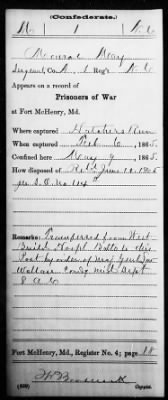 (Confederate.)
M | 1 | N.C.
Sergeant, Co. A, 1 Reg't N.C.
Appears on a record of
Prisoners of War
at Fort McHenry, Md.
Where captured Hatchers Run
When captured Feb 6, 1865.
Confined here May 9, 1865.
How disposed of Rel'd June 10, 1865
per G.O. No 109
Remarks: Transferred from West
Build. Hospl. Balto to this
Post by order of Maj. Genl. Lew
Wallace Comdg Mid. Dept
8 A.C.
Fort McHenry, Md., Register No. 4; page 88
Copyist.